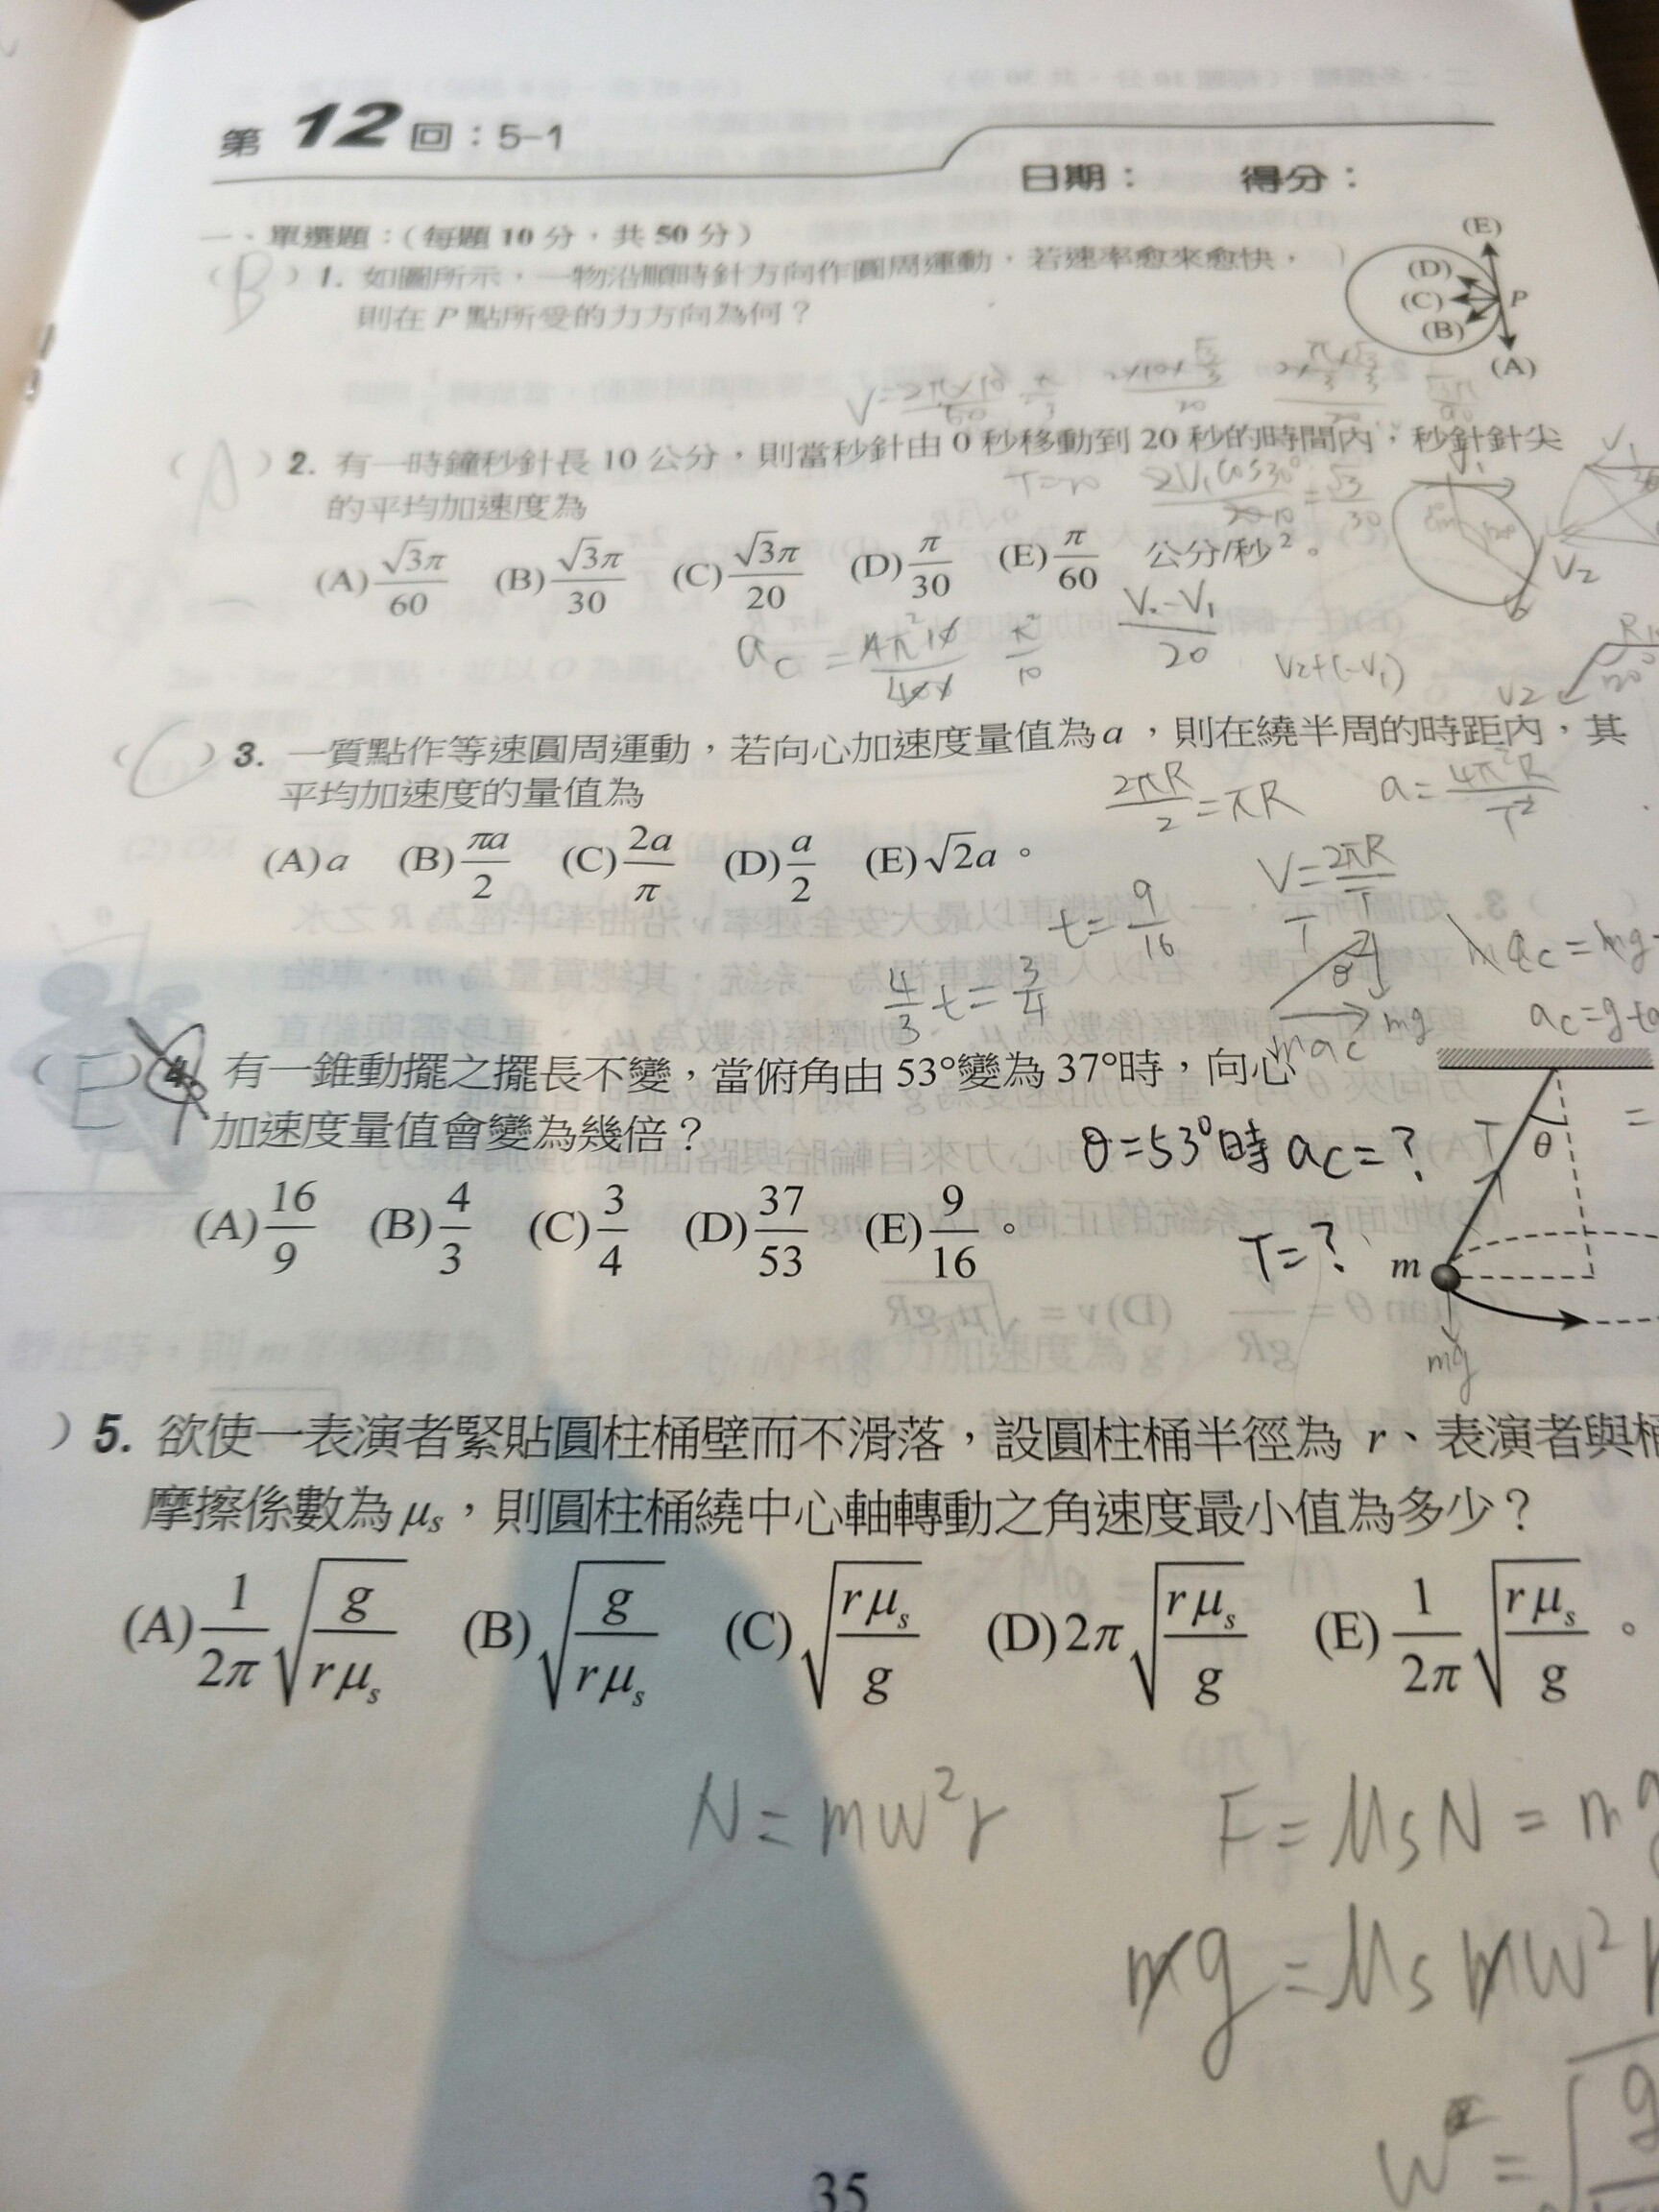 第 12 回：5-1
日期： 得分：
一、單選題：（每題 10 分，共 50 分）
( B ) 1. 如圖所示，一物沿順時針方向作圓周運動，若速率愈來愈快，
則在 P 點所受的力方向為何？
(E)
(D)
(C) P
(B)
(A)
( A ) 2. 有一時鐘秒針長 10 公分，則當秒針由 0 秒移動到 20 秒的時間內，秒針針尖
的平均加速度為
(A) √3π/60 (B) √3π/30 (C) √3π/20 (D) π/30 (E) π/60 公分/秒²。
V₂-V₁/20
V₂+(-V₁)
V₂
a_c = 4π²10/400 π²/10
( C ) 3. 一質點作等速圓周運動，若向心加速度量值為 a，則在繞半周的時距內，其
平均加速度的量值為
2πR/2 = πR a = 4π²R/T²
(A) a (B) πa/2 (C) 2a/π (D) a/2 (E) √2a。
V = 2πR/T
t = 9/16
4/3 t = 3/4
mg
mac
( E ) 4. 有一錐動擺之擺長不變，當俯角由 53°變為 37°時，向心
加速度量值會變為幾倍？
θ=53°時 ac=?
T=?
(A) 16/9 (B) 4/3 (C) 3/4 (D) 37/53 (E) 9/16。
T
θ
m
mg
) 5. 欲使一表演者緊貼圓柱桶壁而不滑落，設圓柱桶半徑為 r、表演者與桶
摩擦係數為 μs，則圓柱桶繞中心軸轉動之角速度最小值為多少？
(A) 1/2π √(g/rμs) (B) √(g/rμs) (C) √(rμs/g) (D) 2π √(rμs/g) (E) 1/2π √(rμs/g)。
N = mw²r F = μsN = mg
mg = μsmw²r
w = √g
35